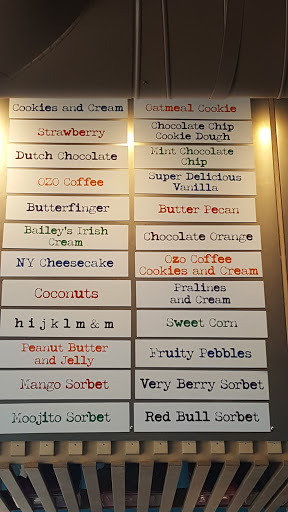 Cookies and Cream
Strawberry
Dutch Chocolate
OZO Coffee
Butterfinger
Bailey's Irish
Cream
NY Cheesecake
Coconuts
h i j k l m & m
Peanut Butter
and Jelly
Mango Sorbet
Moojito Sorbet
Oatmeal Cookie
Chocolate Chip
Cookie Dough
Mint Chocolate
Chip
Super Delicious
Vanilla
Butter Pecan
Chocolate Orange
Ozo Coffee
Cookies and Cream
Pralines
and Cream
Sweet Corn
Fruity Pebbles
Very Berry Sorbet
Red Bull Sorbet